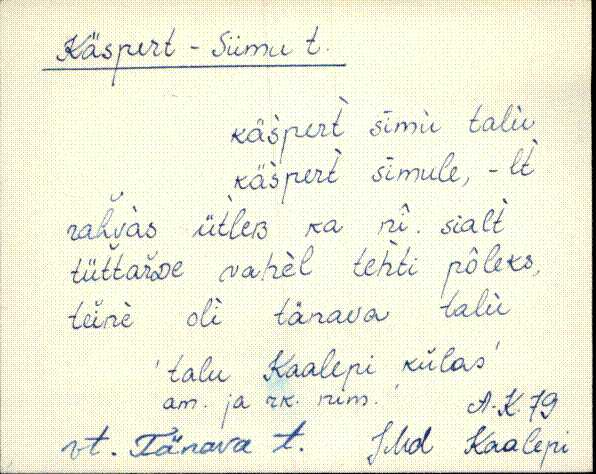 Käspert - Siimu t.
käšpert̀ sīmù talù
käšpert̀ sīmule, - lt̀
rahvàs ütleʙ ka nî. sialt̀
tüt̆tarᴅe vahèl tehti pôleks,
teinè olì tänava talù
'talu Kaalepi külas'
am. ja rk. nim.
A.K. 79
vt. Tänava t. JMd Kaalepi